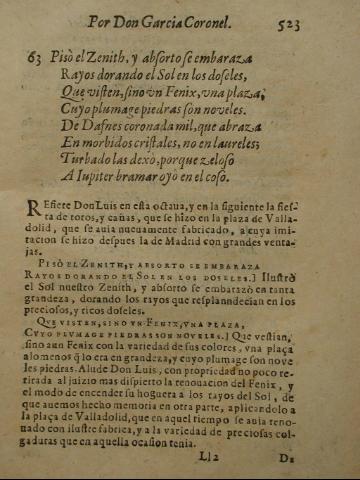 Por Don Garcia Coronel. 523
63 Pisò el Zenith, y absorto se embaraza
Rayos dorando el Sol en los doseles,
Que visten, sino vn Fenix, vna plaza,
Cuyo plumage piedras son noveles.
De Dafnes coronada mil, que abraza
En morbidos cristales, no en laureles;
Turbado las dexò, porque zeloso
A Iupiter bramar oyò en el coso.
REfiere Don Luis en esta octaua, y en la siguiente la fies-
ta de toros, y cañas, que se hizo en la plaza de Valla-
dolid, que se auia nueuamente fabricado, a cuya imi-
tacion se hizo despues la de Madrid con grandes venta-
jas.
PISÒ EL ZENITH, Y ABSORTO SE EMBARAZA
RAYOS DORANDO EL SOL EN LOS DOSELES.] Ilustrò
el Sol nuestro Zenith, y absorto se embarazò en tanta
grandeza, dorando los rayos que resplandecian en los
preciosos, y ricos doseles.
QVE VISTEN, SINO VN FENIX, VNA PLAZA,
CVYO PLVMAGE PIEDRAS SON NOVELES.] Que vestian,
sino aun Fenix con la variedad de sus colores, vna plaça
alomenos q̃ lo era en grandeza, y cuyo plumage son nove
les piedras. Alude Don Luis, con propriedad no poco re-
tirada al juizio mas dispierto la renouacion del Fenix, y
el modo de encender su hoguera a los rayos del Sol, de
que auemos hecho memoria en otra parte, aplicandolo a
la plaça de Valladolid, que en aquel tiempo se auia reno-
uado con ilustre fabrica, y a la variedad de preciosas col-
gaduras que en aquella ocasion tenia.
Ll2 De